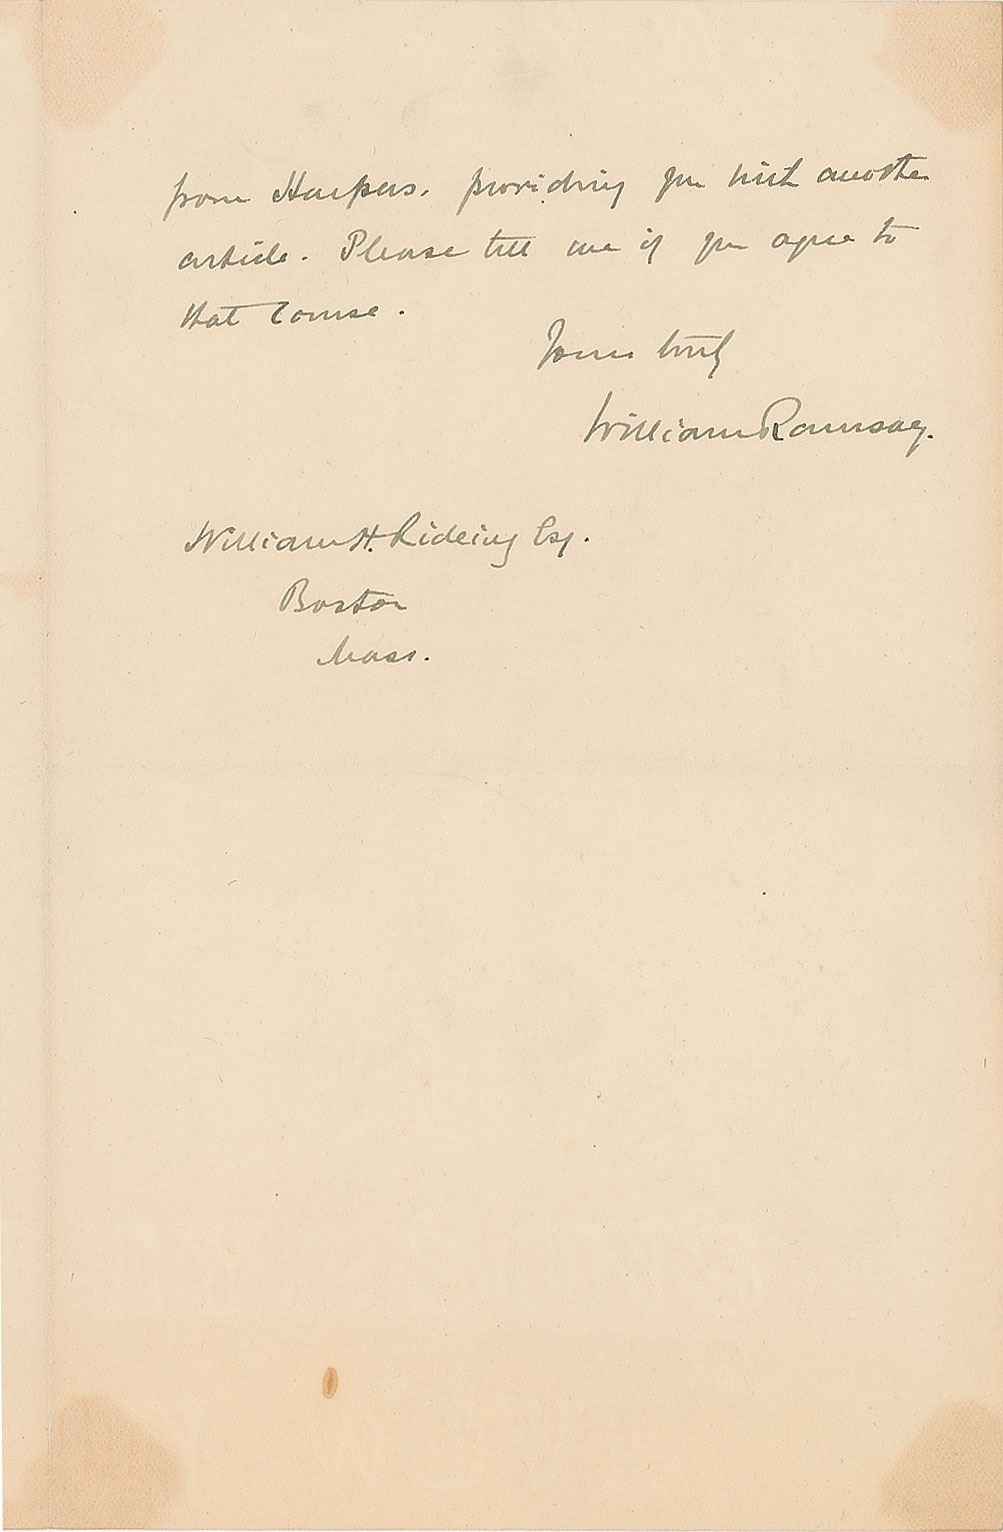 from Harpers. providing you with another
article. Please tell me if you agree to
that course.
Yours truly
William Ramsay.
William H. Rideing Esq.
Boston
Mass.